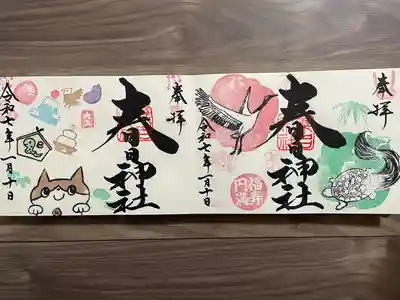 奉拝
春日神社
令和七年一月十日
福寿
円満
奉拝
春日神社
令和七年一月十日